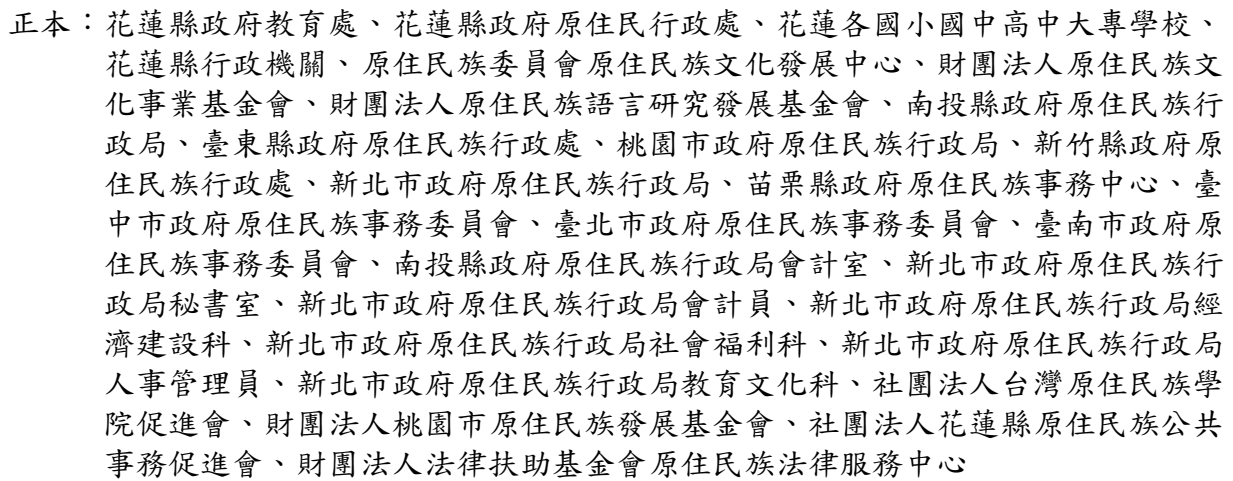 正本：花蓮縣政府教育處、花蓮縣政府原住民行政處、花蓮各國小國中高中大專學校、
花蓮縣行政機關、原住民族委員會原住民族文化發展中心、財團法人原住民族文
化事業基金會、財團法人原住民族語言研究發展基金會、南投縣政府原住民族行
政局、臺東縣政府原住民族行政處、桃園市政府原住民族行政局、新竹縣政府原
住民族行政處、新北市政府原住民族行政局、苗栗縣政府原住民族事務中心、臺
中市政府原住民族事務委員會、臺北市政府原住民族事務委員會、臺南市政府原
住民族事務委員會、南投縣政府原住民族行政局會計室、新北市政府原住民族行
政局秘書室、新北市政府原住民族行政局會計員、新北市政府原住民族行政局經
濟建設科、新北市政府原住民族行政局社會福利科、新北市政府原住民族行政局
人事管理員、新北市政府原住民族行政局教育文化科、社團法人台灣原住民族學
院促進會、財團法人桃園市原住民族發展基金會、社團法人花蓮縣原住民族公共
事務促進會、財團法人法律扶助基金會原住民族法律服務中心